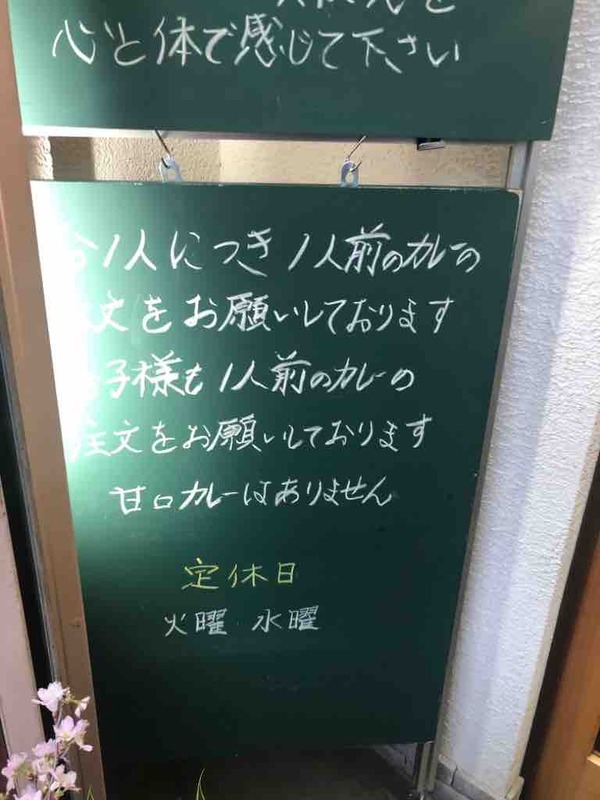 心と体で感じて下さい
1人につき1人前のカレーの
文をお願いしております
子様も1人前のカレーの
注文をお願いしております
甘口カレーはありません
定休日
火曜 水曜